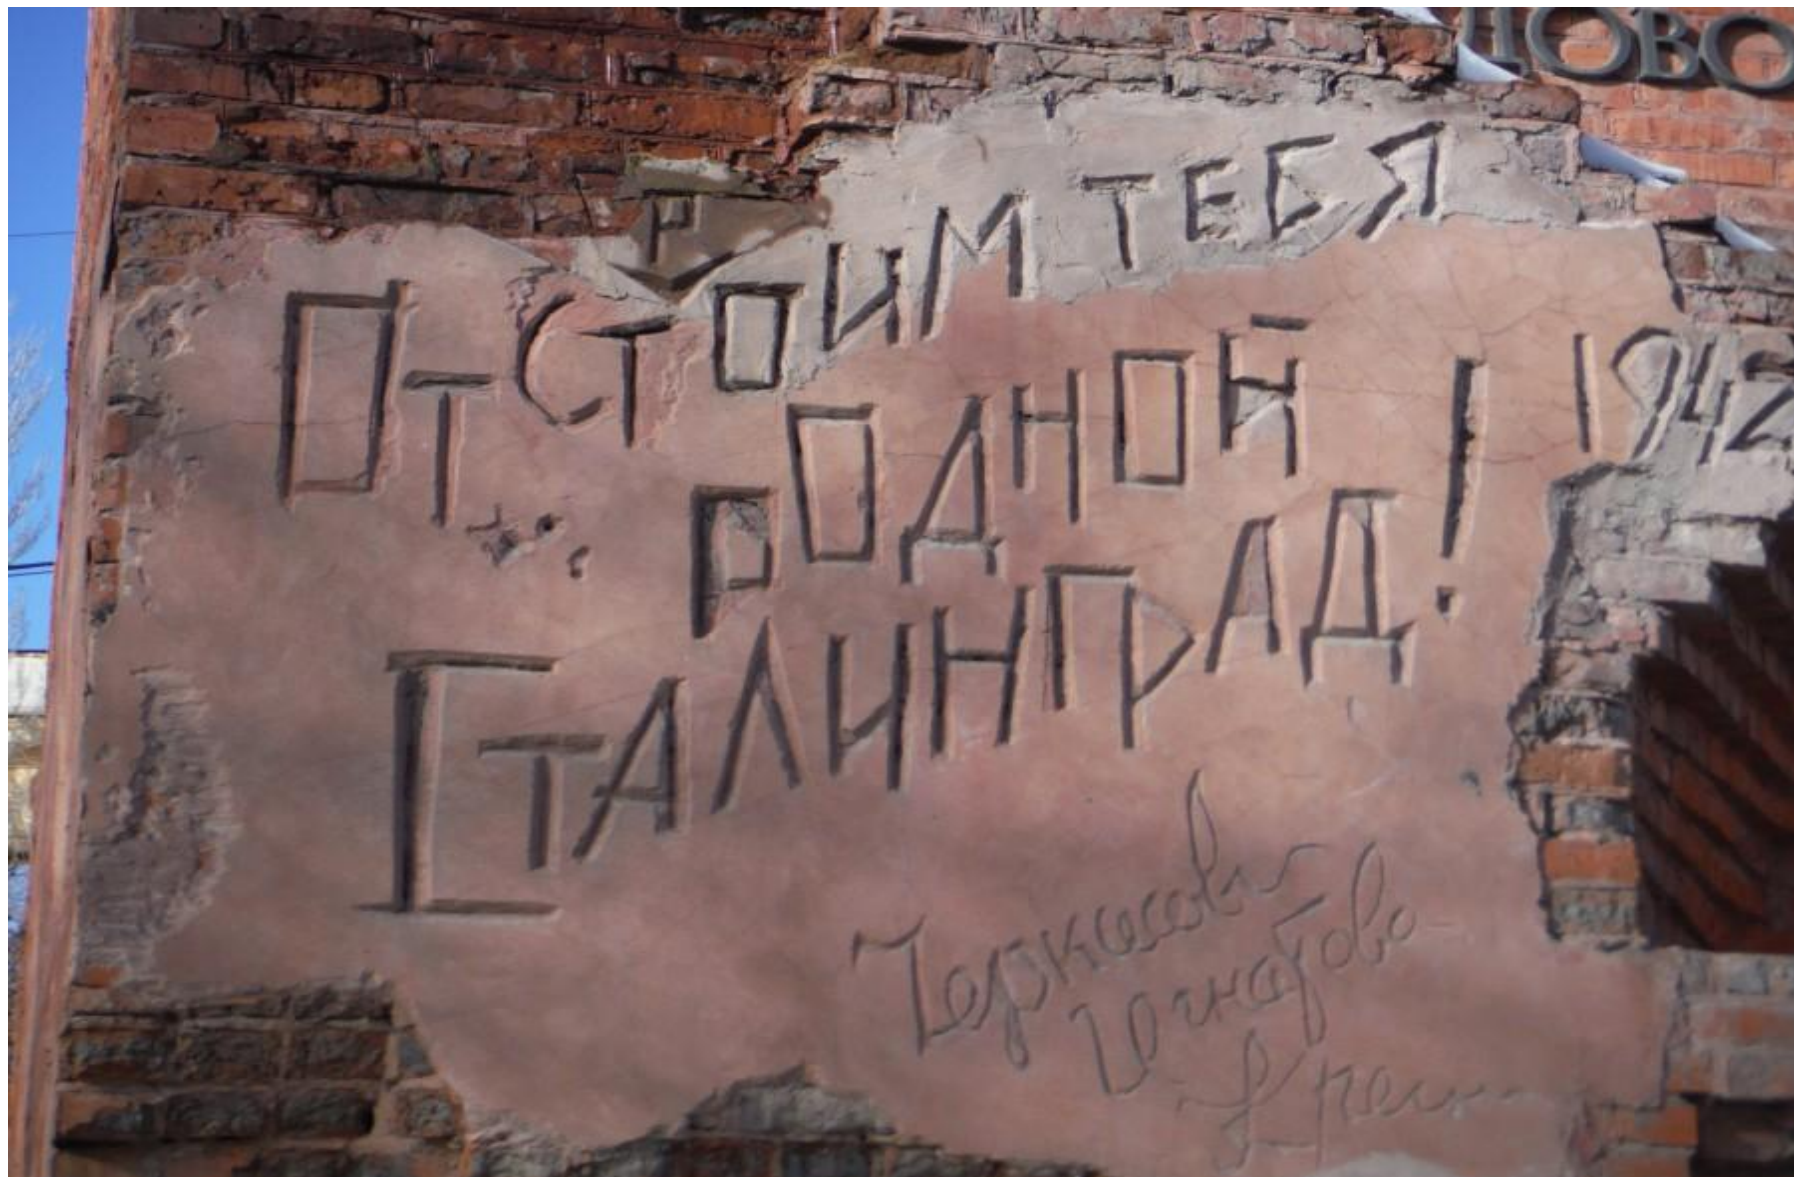 ДОВО
Отстоим тебя
родной
Сталинград! 1942
Черкасова
Игнатова